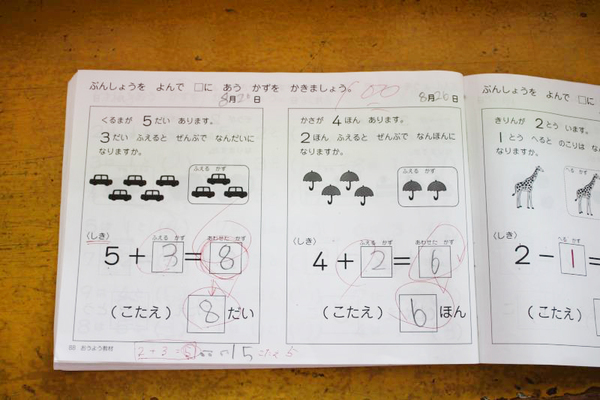 ぶんしょうを よんで □に あう かずを かきましょう。
100
8月26日
くるまが 5だい あります。
3だい ふえると ぜんぶで なんだいに
なりますか。
ふえる かず
〈しき〉
ふえる かず
あわせた かず
5+3=8
(こたえ) 8だい
8月26日
かさが 4ほん あります。
2ほん ふえると ぜんぶで なんぼんに
なりますか。
ふえる かず
〈しき〉
ふえる かず
あわせた かず
4+2=6
(こたえ) 6ほん
88 おうよう教材
2+3=5
15
ぶんしょうを よんで □に
きりんが 2とう います。
1とう へると のこりは な
なりますか。
へる かず
〈しき〉
へる かず
2-1=
(こたえ)